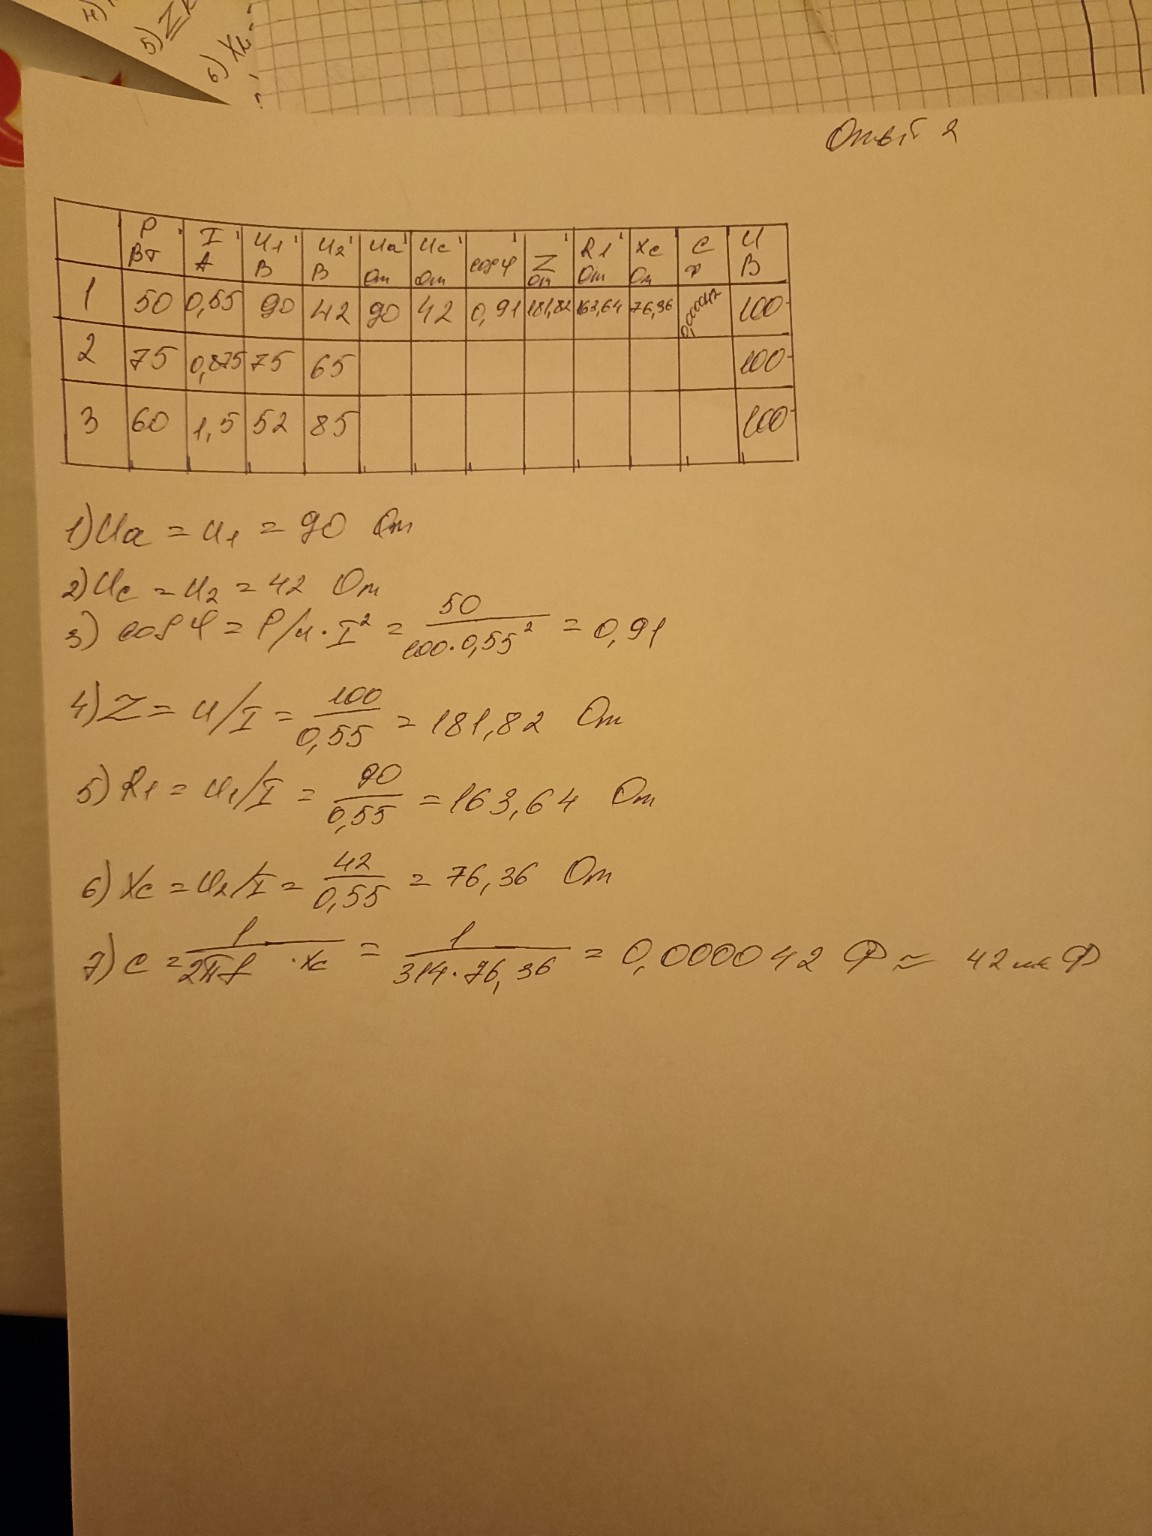 4)
5) Z
6) Xc
Опыт 2
P Вт | I А | U1 В | U2 В | Ua Ом | Uc Ом | cosφ | Z Ом | R1 Ом | Xc Ом | C Ф | U В
1 | 50 | 0,55 | 90 | 42 | 90 | 42 | 0,91 | 181,82 | 163,64 | 76,36 | 0,000042 | 100
2 | 75 | 0,875 | 75 | 65 | 100
3 | 60 | 1,5 | 52 | 85 | 100
1) Ua = U1 = 90 Ом
2) Uc = U2 = 42 Ом
3) cosφ = P/U·I² = 50/100·0,55² = 0,91
4) Z = U/I = 100/0,55 = 181,82 Ом
5) R1 = U1/I = 90/0,55 = 163,64 Ом
6) Xc = U2/I = 42/0,55 = 76,36 Ом
7) C = 1/2πf·Xc = 1/314·76,36 = 0,000042 Ф ≈ 42 мк Ф